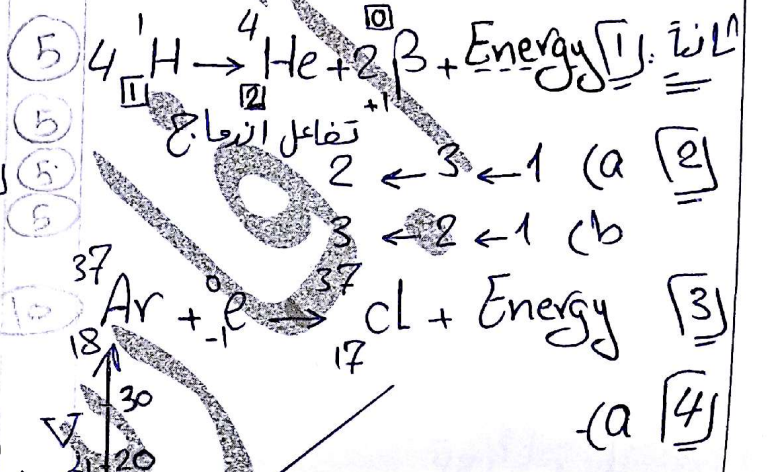 ثانيًا: [1] 4 ¹₁H → ⁴₂He + 2 ⁰₊₁β + Energy (5)
تفاعل اندماج (5)
[2] a) 1 → 3 → 2 (5)
b) 1 → 2 → 3 (5)
[3] ³⁷₁₈Ar + ⁰₋₁e → ³⁷₁₇Cl + Energy (10)
[4] a)-
30
V
20